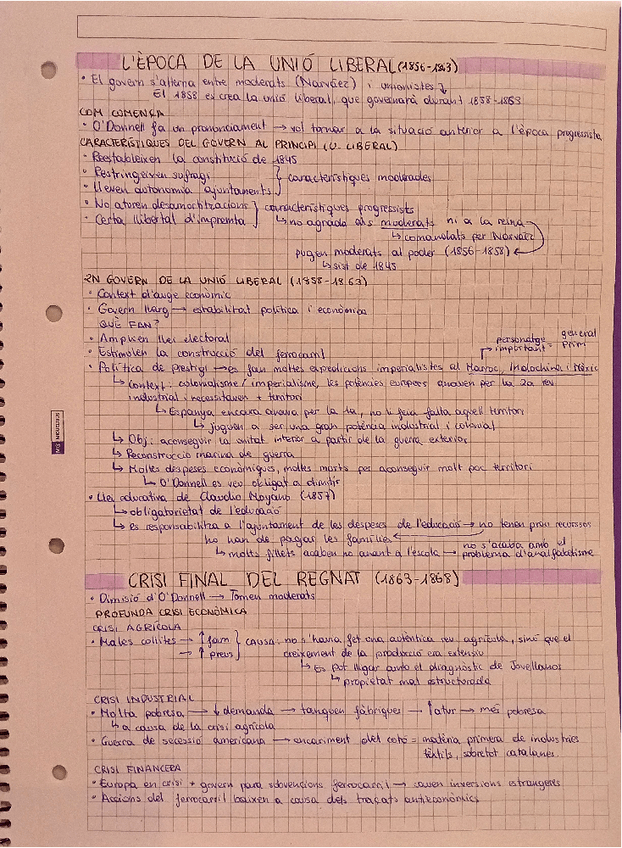 L'ÈPOCA DE LA UNIÓ LIBERAL (1856-1863)
• El govern s'alterna entre moderats (Narváez) i unionistes
El 1858 es crea la unió liberal, que governarà durant 1858-1863
COM COMENÇA
• O'Donnell fa un pronunciament → vol tornar a la situació anterior a l'època progressista
CARACTERÍSTIQUES DEL GOVERN AL PRINCIPI (U. LIBERAL)
• Reestableixen la constitució de 1845
• Restringeixen sufragi } característiques moderades
• Lleven autonomia ajuntaments
• No aturen desamortitzacions } característiques progressists
• Certa llibertat d'impremta ↳ no agrada als moderats ni a la reina
↳ comandats per Narváez
pugen moderats al poder (1856-1858) ←
↳ sist de 1845
2N GOVERN DE LA UNIÓ LIBERAL (1858-1863)
• Context d'auge econòmic
• Govern llarg → estabilitat política i econòmica
QUÈ FAN?
• Amplien llei electoral
• Estimulen la construcció del ferrocarril
personatge important = general Prim
• Política de prestigi → es fan moltes expedicions imperialistes al Maroc, Indochina i Mèxic
↳ Context: colonialisme/imperialisme, les potències europees anaven per la 2a rev
industrial i necessitaven + territori
↳ Espanya encara anava per la 1a, no li feia falta aquell territori
↳ juguen a ser una gran potència industrial i colonial
↳ Obj: aconseguir la unitat interior a partir de la guerra exterior
↳ Reconstrucció marina de guerra
↳ Moltes despeses econòmiques, moltes morts per aconseguir molt poc territori
↳ O'Donnell es veu obligat a dimitir
• Llei educativa de Claudio Moyano (1857)
↳ obligatorietat de l'educació
↳ es responsabilitza a l'ajuntament de les despeses de l'educació → no tenen prou recursos
ho han de pagar les famílies ←
↳ molts fillets acaben no anant a l'escola → no s'acaba amb el problema d'analfabetisme
CRISI FINAL DEL REGNAT (1863-1868)
• Dimisió d'O'Donnell → Tornen moderats
PROFUNDA CRISI ECONÒMICA
CRISI AGRÍCOLA
• Males collites → ↑ fam } CAUSA: no s'havia fet una autèntica rev agrícola, sinó que el
→ ↑ preus creixement de la producció era extensiu
↳ Es pot lligar amb el diagnòstic de Jovellanos
↳ propietat mal estructurada
CRISI INDUSTRIAL
• Molta pobresa → ↓ demanda → tanquen fàbriques → ↑ atur → més pobresa
↳ a causa de la crisi agrícola
• Guerra de secessió americana → encariment del cotó = matèria primera de industries
tèxtils, sobretot catalanes.
CRISI FINANCERA
• Europa en crisi + govern para subvencions ferrocarril → cauen inversions estrangeres
• Accions del ferrocarril baixen a causa dels traçats antieconòmics